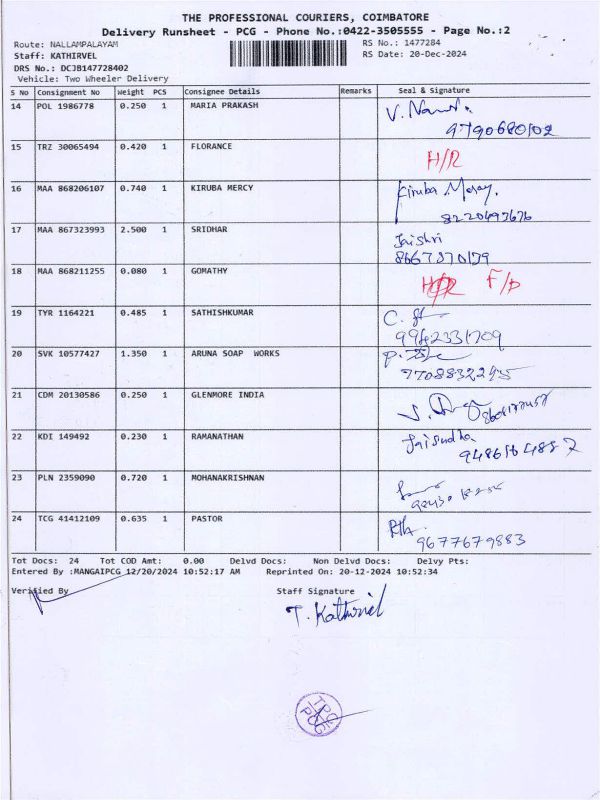 THE PROFESSIONAL COURIERS, COIMBATORE
Delivery Runsheet - PCG - Phone No.:0422-3505555 - Page No.:2
Route: NALLAMPALAYAM
RS No.: 1477284
Staff: KATHIRVEL
RS Date: 20-Dec-2024
DRS No.: DCJB147728402
Vehicle: Two Wheeler Delivery
S No Consignment No Weight PCS Consignee Details Remarks Seal & Signature
14 POL 1986778 0.250 1 MARIA PRAKASH
9790680102
15 TRZ 30065494 0.420 1 FLORANCE H/R
16 MAA 868206107 0.740 1 KIRUBA MERCY Kiruba Mercy.
8220497676
17 MAA 867323993 2.500 1 SRIDHAR Jaishri
8667370179
18 MAA 868211255 0.080 1 GOMATHY F/D
19 TYR 1164221 0.485 1 SATHISHKUMAR
9942331709
20 SVK 10577427 1.350 1 ARUNA SOAP WORKS
7708832245
21 CDM 20130586 0.250 1 GLENMORE INDIA
22 KDI 149492 0.230 1 RAMANATHAN Jaisudha
23 PLN 2359090 0.720 1 MOHANAKRISHNAN
24 TCG 41412109 0.635 1 PASTOR
9677679883
Tot Docs: 24 Tot COD Amt: 0.00 Delvd Docs: Non Delvd Docs: Delvy Pts:
Entered By :MANGAIPCG 12/20/2024 10:52:17 AM Reprinted On: 20-12-2024 10:52:34
Verified By Staff Signature
T. Kathirvel
TPC
PCG